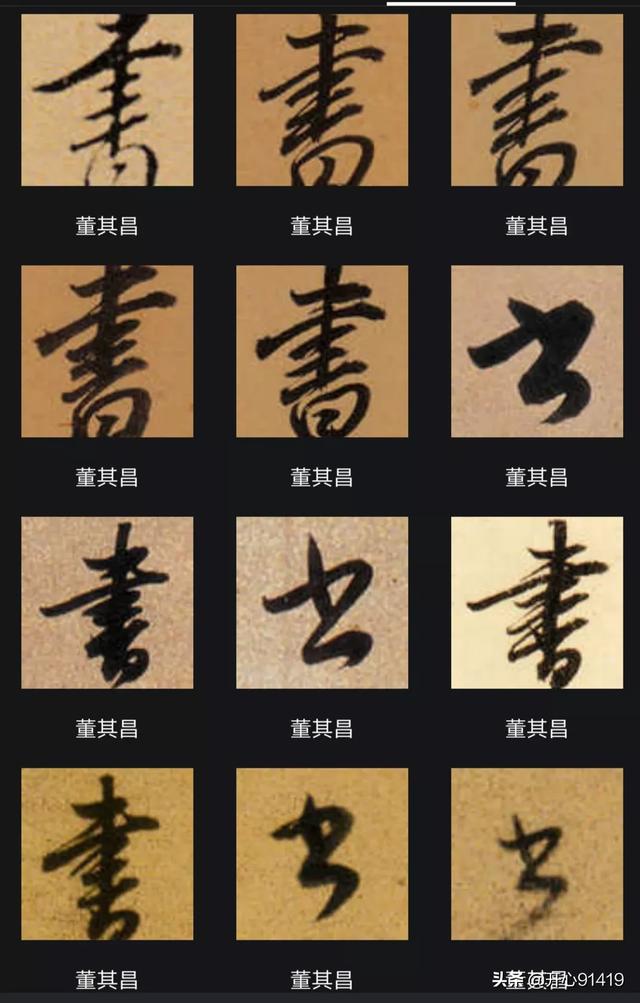 書 書 書
董其昌 董其昌 董其昌
書 書 书
董其昌 董其昌 董其昌
書 书 書
董其昌 董其昌 董其昌
書 书 书
董其昌 董其昌 董其昌
头条 @开心91419